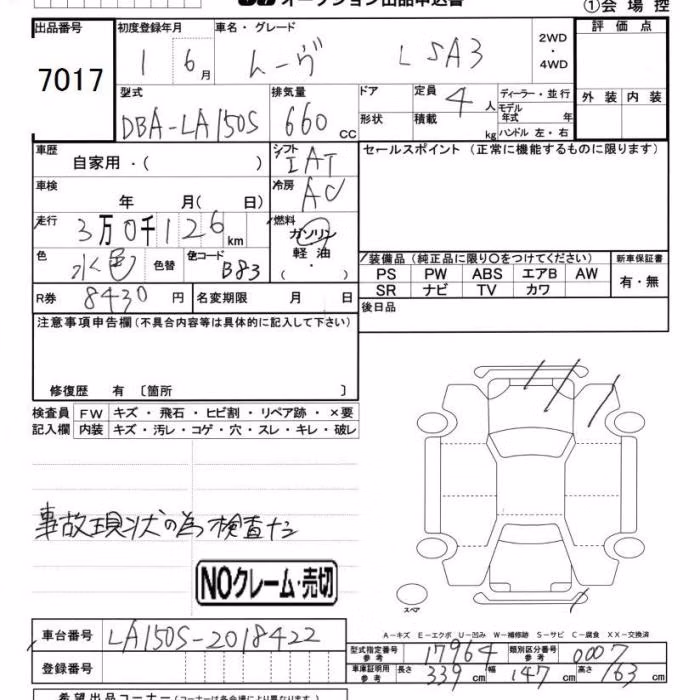 オークション出品申込書 ①会場控
出品番号 初度登録年月 車名・グレード 評価点
7017 1 6月 ムーヴ L SA3 2WD・4WD
型式 排気量 ドア 定員 4人 ディーラー・並行 外装 内装
DBA-LA150S 660cc 形状 積載 kg モデル年式 年
ハンドル 左・右
車歴 自家用・( ) シフト IAT セールスポイント(正常に機能するものに限ります)
車検 年 月( 日) 冷房 AC
走行 3万0千126km 燃料 ガソリン
軽油
( ・ )
色 水色 色替 色コード B83 装備品(純正品に限り○をつけてください) 新車保証書
PS PW ABS エアB AW 有・無
R券 8430円 名変期限 月 日 SR ナビ TV カワ
後日品
注意事項申告欄(不具合内容等は具体的に記入して下さい)
修復歴 有 〔箇所 〕
検査員 FW キズ・飛石・ヒビ割・リペア跡・×要
記入欄 内装 キズ・汚レ・コゲ・穴・スレ・キレ・破レ
事故現状の為検査ナシ
NOクレーム・売切
スペア
A-キズ E-エクボ U-凹み W-補修跡 S-サビ C-腐食 XX-交換済
車台番号 LA150S-2018422 型式指定番号 参考 17964 類別区分番号 参考 0007
登録番号 車庫証明用 参考 長さ 339cm 幅 147cm 高さ 163cm
希望出品コーナー(コーナーは各会場により異なります)